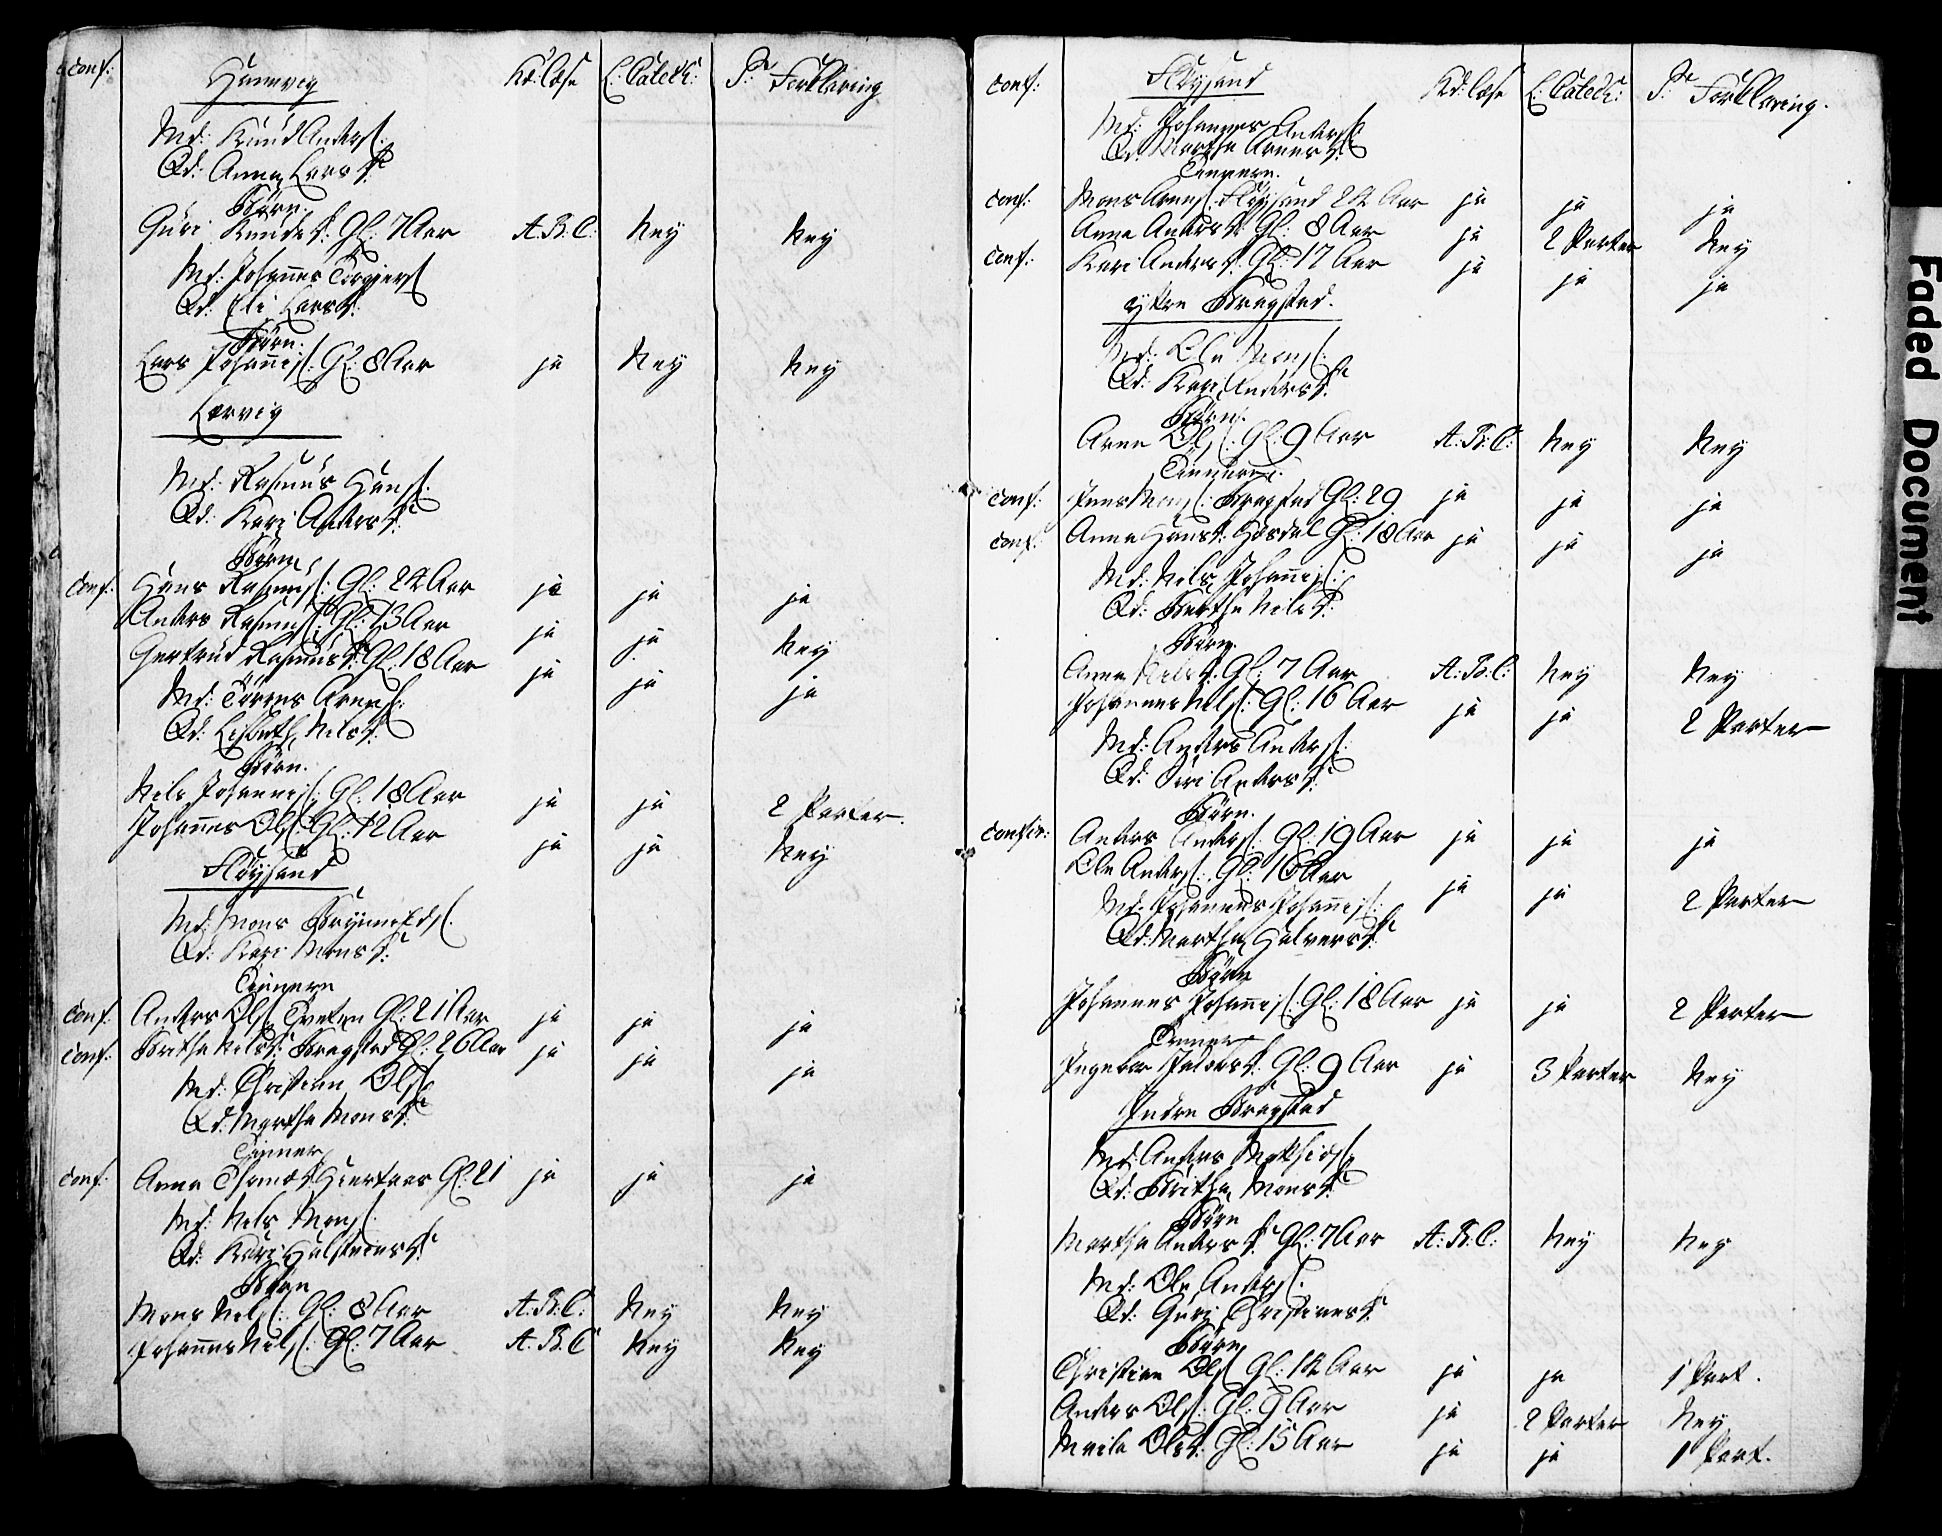 Conf: Hunnvig Kd: læse L: Catech: P: Forklaring
Md: Knud Anders:
Qd: Anna Lars D:
Børn
Guri Knuds D: Gl: 7 Aar A.B.C: Ney Ney
Md: Johannes Torgiers:
Qd: Eli Lars D:
Børn:
Lars Johannes: Gl: 8 Aar ja Ney Ney
Lervig
Md: Rasmus Hans:
Qd: Kari Anders D:
Børn
Conf: Hans Rasmus: Gl: 24 Aar ja ja ja
Anders Rasmus: Gl: 13 Aar ja ja Ney
Gertrud Rasmus D: Gl: 18 Aar ja ja ja
Md: Arnes:
Qd: Lisbeth Nils D:
Børn.
Nils Johannes: Gl: 18 Aar ja ja 2 Parter.
Johannes Ols: Gl: 12 Aar ja ja Ney
Fløysand
Md: Mons Brynnilds:
Qd: Kari Mons D:
Tienere
Conf: Anders Ols: Tveten Gl: 21 Aar ja ja ja
Conf: Brithe Nils D: Bragstad Gl: 26 Aar ja ja ja
Md: Christian Ols:
Qd: Marthe Mons D:
Tienere
Conf: Anna Thomas D: Hiertaas Gl: 21 ja ja ja
Md: Nils Mons:
Qd: Kari Halstens D:
Børn
Mons Nils: Gl: 8 Aar A.B.C: Ney Ney
Johannes Nils: Gl: 7 Aar A.B.C Ney Ney
Conf: Fløysand Kd: læse L: Catech: P: Forklaring.
Md: Johannes Anders:
Qd: Marthe Arnes D:
Tienere.
Conf: Mons Arnes: Fløysand 24 Aar ja ja ja
Anna Anders D: Gl: 8 Aar ja 2 Parter Ney
Conf: Kari Anders D: Gl: 17 Aar ja ja ja
ytre Bragstad.
Md: Ole Mons:
Qd: Kari Anders D:
Børn:
Arne Ols: Gl: 9 Aar A.B.C: Ney Ney
Tienere:
Conf: Mons: Bragstad Gl: 29 ja ja ja
Conf: Anna Hans D: Hosdal Gl: 18 Aar ja ja ja
Md: Nils Johannes:
Qd: Berthe Nils D:
Børn.
Anna Nils D: Gl: 7 Aar A.B.C: Ney Ney
Johannes Nils: Gl: 16 Aar ja ja 2 Parter
Md: Anders Anders:
Qd: Siri Anders D:
Børn.
Confir: Anders Anders: Gl: 19 Aar ja ja ja
Ole Anders: Gl: 16 Aar ja ja 2 Parter
Md: Johannes Johannes:
Qd: Marthe Halvers D:
Børn
Johannes Johannes: Gl: 18 Aar ja ja 2 Parter
Tienere
Ingebor D: Gl: 9 Aar ja 3 Parter Ney
Indre Bragstad
Md: Anders Mathias:
Qd: Brithe Mons D:
Børn
Marthe Anders D: Gl: 7 Aar A.B.C: Ney Ney
Md: Ole Anders:
Qd: Guri Christians D:
Børn
Christian Ols: Gl: 14 Aar ja ja 1 Part.
Anders Ols: Gl: 9 Aar ja 2 Parter Ney
Ols D: Gl: 15 Aar ja ja 1 Part.
Faded Document